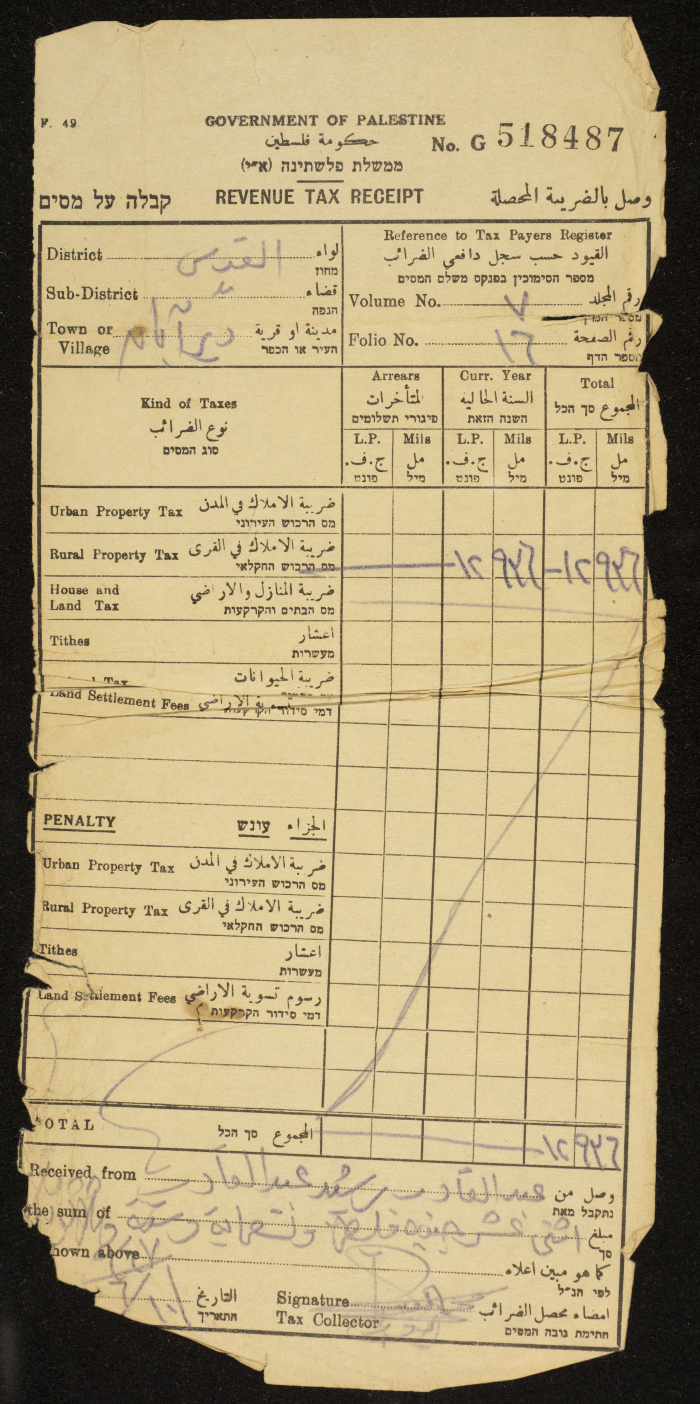 F. 49.
GOVERNMENT OF PALESTINE
حكومة فلسطين
No. G 518487
ממשלת פלשתינה (א״י)
קבלה על מסים REVENUE TAX RECEIPT وصل بالضريبة المحصلة
District القدس لواء
מחוז
Sub-District قضاء
הנפה
Town or مدينة او قرية
Village דיר آبان העיר או הכפר
Reference to Tax Payers Register
القيود حسب سجل دافعي الضرائب
מספר הסימוכין בפנקס משלם המסים
Volume No. ٧ رقم المجلد
Folio No. ١٦ رقم الصفحة
מספר הדף
Kind of Taxes
نوع الضرائب
סוג המסים
Arrears Curr. Year Total
المتأخرات السنة الحالية المجموع סך הכל
פיגורי תשלומים השנה הזאת
L.P. Mils L.P. Mils L.P. Mils
ج.ف. مل ج.ف. مل ج.ف. مل
פונט מיל פונט מיל פונט מיל
Urban Property Tax ضريبة الاملاك في المدن
מס הרכוש העירוני
Rural Property Tax ضريبة الاملاك في القرى
מס הרכוש החקלאי
House and ضريبة المنازل والاراضي
Land Tax מס הבתים והקרקעות
Tithes اعشار
מעשרות
Tax ضريبة الحيوانات
Land Settlement Fees الاراضي
דמי סידור
PENALTY עונש الجزاء
Urban Property Tax ضريبة الاملاك في المدن
מס הרכוש העירוני
Rural Property Tax ضريبة الاملاك في القرى
מס הרכוש החקלאי
Tithes اعشار
מעשרות
Land Settlement Fees رسوم تسوية الاراضي
דמי סידור הקרקעות
TOTAL סך הכל المجموع
Received from عبد القادر عبد القادر وصل من
נתקבל מאת
the sum of اثنى عشر جنيه مبلغ
סך
hown above كما هو مبين اعلاه
לפי הנ״ל
التاريخ Signature امضاء محصل الضرائب
התאריך Tax Collector חתימת גובה המסים